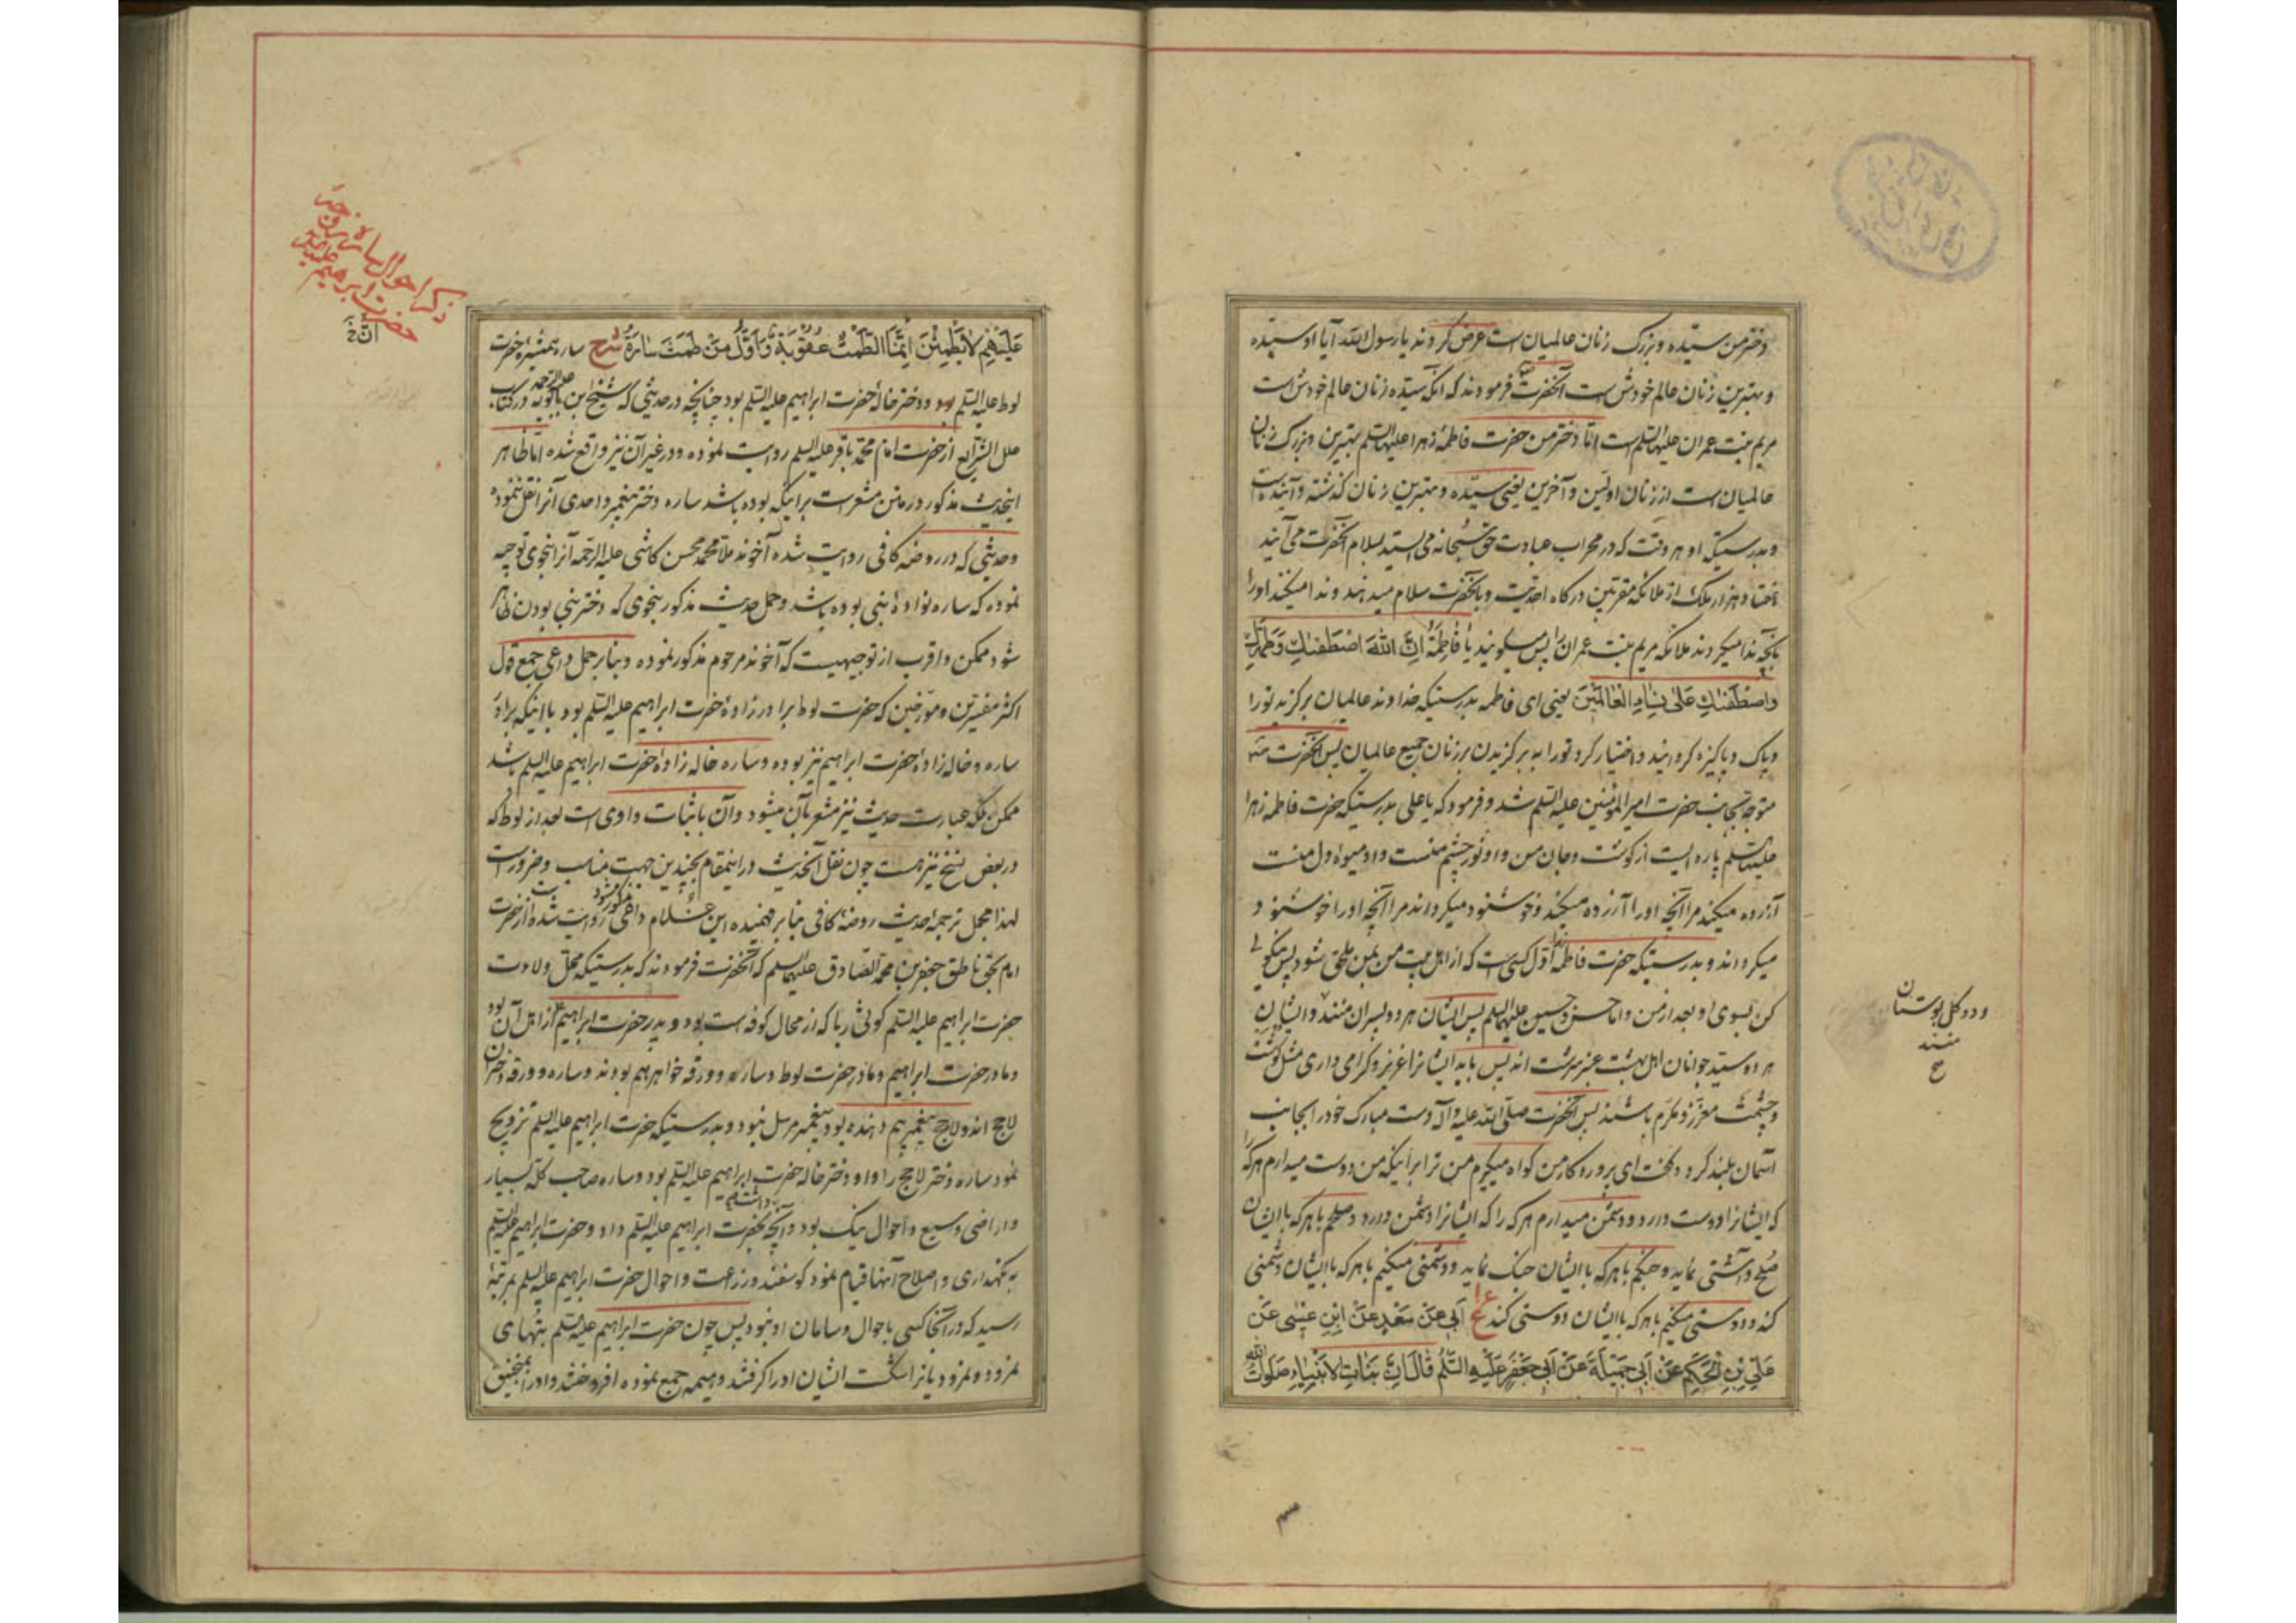 دختر من سیّده و بزرگ زنان عالمیان است عرض کردند یا رسول الله آیا او سیّده
و بهترین زنان عالم خودش است آنحضرت فرمودند که آنکه سیّده زنان عالم خودش است
مریم بنت عمران علیها السلم است امّا دختر من حضرت فاطمهٔ زهرا علیها السلم بهترین و بزرگ زنان
عالمیان است از زنان اوّلین و آخرین یعنی سیّده و بهترین زنان گذشته و آینده است
و بدرستیکه او هر وقت که در محراب عبادت حق سبحانه می ایستد بسلام آنحضرت می آیند
هفتاد هزار ملک از ملائکه مقرّبین درکاه احدیّت و بآنحضرت سلام میدهند و ندا میکنند او را
بآنچه ندا میکردند ملائکه مریم بنت عمران را پس میگویند یا فاطِمَةُ اِنَّ اللّهَ اصْطَفٰیكِ وَطَهَّرَكِ
وَاصْطَفٰیكِ عَلیٰ نِسٰاءِ الْعٰالَمینَ یعنی ای فاطمه بدرستیکه خداوند عالمیان برکزید تو را
و پاک و پاکیزه کردانید و اختیار کرد تو را به برکزیدن بر زنان جمیع عالمیان پس آنحضرت
متوجّه بجانب حضرت امیر المؤمنین علیه السلم شد و فرمود که یا علی بدرستیکه حضرت فاطمه زهرا
علیها السلم پاره ایست از کوشت و جان من و او نور چشم منست و او میوهٔ دل منست
آزرده میکند مرا آنچه او را آزرده میکند و خوشنود میکرداند مرا آنچه او را خوشنود
میکرداند و بدرستیکه حضرت فاطمه اوّل کسی است که از اهل بیت من بمن ملحق شود پس نیکوئی
کن بسوی او بعد از من و امّا حسن و حسین علیهما السلم پس ایشان هر دو پسران منند و ایشان
و دو کل بوستان
منند
هر دو سیّد جوانان اهل بهشت عنبر سرشت اند پس باید ایشانرا عزیز و کرامی داری مثل کوشت
و چشمت معزّز و مکرّم باشند پس آنحضرت صلّی الله علیه و آله دست مبارک خود را بجانب
آسمان بلند کرد و کفت ای پروردکار من کواه میکیرم من ترا برا ینکه من دوست میدارم هر که را
که ایشانرا دوست دارد و دشمن میدارم هر که را که ایشانرا دشمن دارد و صلحم با هر که با ایشان
صلح و آشتی نماید و جنکم با هر که با ایشان جنک نماید و دشمنی میکنم با هر که با ایشان دشمنی
کند و دوستی میکنم با هر که با ایشان دوستی کند اَبی عَنْ سَعْدٍ عَنْ ابْنِ عیسٰی عَنْ
عَلِیِّ بْنِ الْحَکَمِ عَنْ اَبی جَمیلَةَ عَنْ اَبی جَعْفَرٍ عَلَیْهِ السَّلٰمُ قالَ اِنَّ بَنٰاتِ الْاَنْبِیٰاءِ صَلَوٰاتُ اللّهِ
ذکر احوال ساره
حضرت ابرهیم
عَلَیْهِمْ لایَطْمِثْنَ اِنَّمَا الطَّمْثُ عُقُوبَةٌ وَ اَوَّلُ مَنْ طَمِثَتْ سٰارَةُ شرح ساره همشیرهٔ حضرت
لوط علیه السلم بود و دختر خالهٔ حضرت ابراهیم علیه السلم بود چنانچه در حدیثی که شیخ ابن بابویه علیه الرحمه در کتاب
علل الشرایع از حضرت امام محمّد باقر علیه السلم روایت نموده و در غیر آن نیز واقع شده امّا ظاهر
اینحدیث مذکور در متن مشعر است برا ینکه بوده باشد ساره دختر پیغمبر و احدی آنرا نقل ننموده
و حدیثی که در روضه کافی روایت شده آخوند ملّا محمّد محسن کاشی علیه الرحمه آنرا بنحوی توجیه
نموده که ساره نوادهٔ نبی بوده باشد و حمل حدیث مذکور بنحوی که دختر نبی بودن ظاهر
شود ممکن و اقرب از توجیهیست که آخوند مرحوم مذکور نموده و بنا بر حمل داعی جمع قول
اکثر مفسّرین و مورّخین که حضرت لوط برادرزادهٔ حضرت ابراهیم علیه السلم بود با اینکه برادر
ساره و خاله زادهٔ حضرت ابراهیم نیز بوده و ساره خاله زادهٔ حضرت ابراهیم علیه السلم باشد
ممکن بلکه عبارت حدیث نیز مشعر بآن میشود و آن باثبات واوی است بعد از لوط که
در بعض نسخ نیز هست چون نقل آنحدیث در اینمقام بچندین جهت مناسب و ضرور است
لهذا مجمل ترجمه حدیث روضهٔ کافی بنا بر فهمیده این غلام داعی مذکور میشود روایت شده از حضرت
امام بحق ناطق جعفر بن محمّد الصادق علیهما السلم که آنحضرت فرمودند که بدرستیکه محلّ ولادت
حضرت ابراهیم علیه السلم کوثی ربا که از محال کوفه است بود و پدر حضرت ابراهیم از اهل آن بود
و مادر حضرت ابراهیم و مادر حضرت لوط و ساره و ورقه خواهر هم بودند و ساره و ورقه دختران
لاحج اند و لاحج پیغمبر بیم دهنده بود پیغمبر مرسل نبود و بدرستیکه حضرت ابراهیم علیه السلم تزویج
نمود ساره دختر لاحج را و او دختر خاله حضرت ابراهیم علیه السلم بود و ساره صاحب کلّه بسیار
و اراضی وسیع و احوال نیک بود و آنچه داشت بحضرت ابراهیم علیه السلم داد و حضرت ابراهیم علیه السلم
به نکهداری و اصلاح آنها قیام نمود کوسفند و زراعت و احوال حضرت ابراهیم علیه السلم بمرتبهٔ
رسید که در آنجا کسی باحوال و سامان او نبود پس چون حضرت ابراهیم علیه السلم بتهای
نمرود و نمرودیانرا شکست ایشان او را کرفتند و هیمه جمع نموده افروختند و او را بمنجنیق